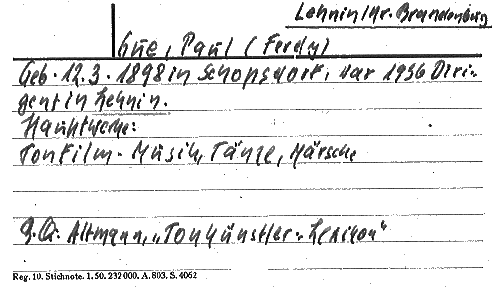 Lehnin/Kr. Brandenburg
Güe, Paul (Ferdy)
Geb. 12.3.1898 in Schopsdorf, war 1936 Diri-
gent in Lehnin.
Hauptwerke:
Tonfilm-Musik, Tänze, Märsche
Altmann, „Tonkünstler-Lexikon"
Reg. 10. Stichnote. 1. 50. 232000. A. 803. S. 4062